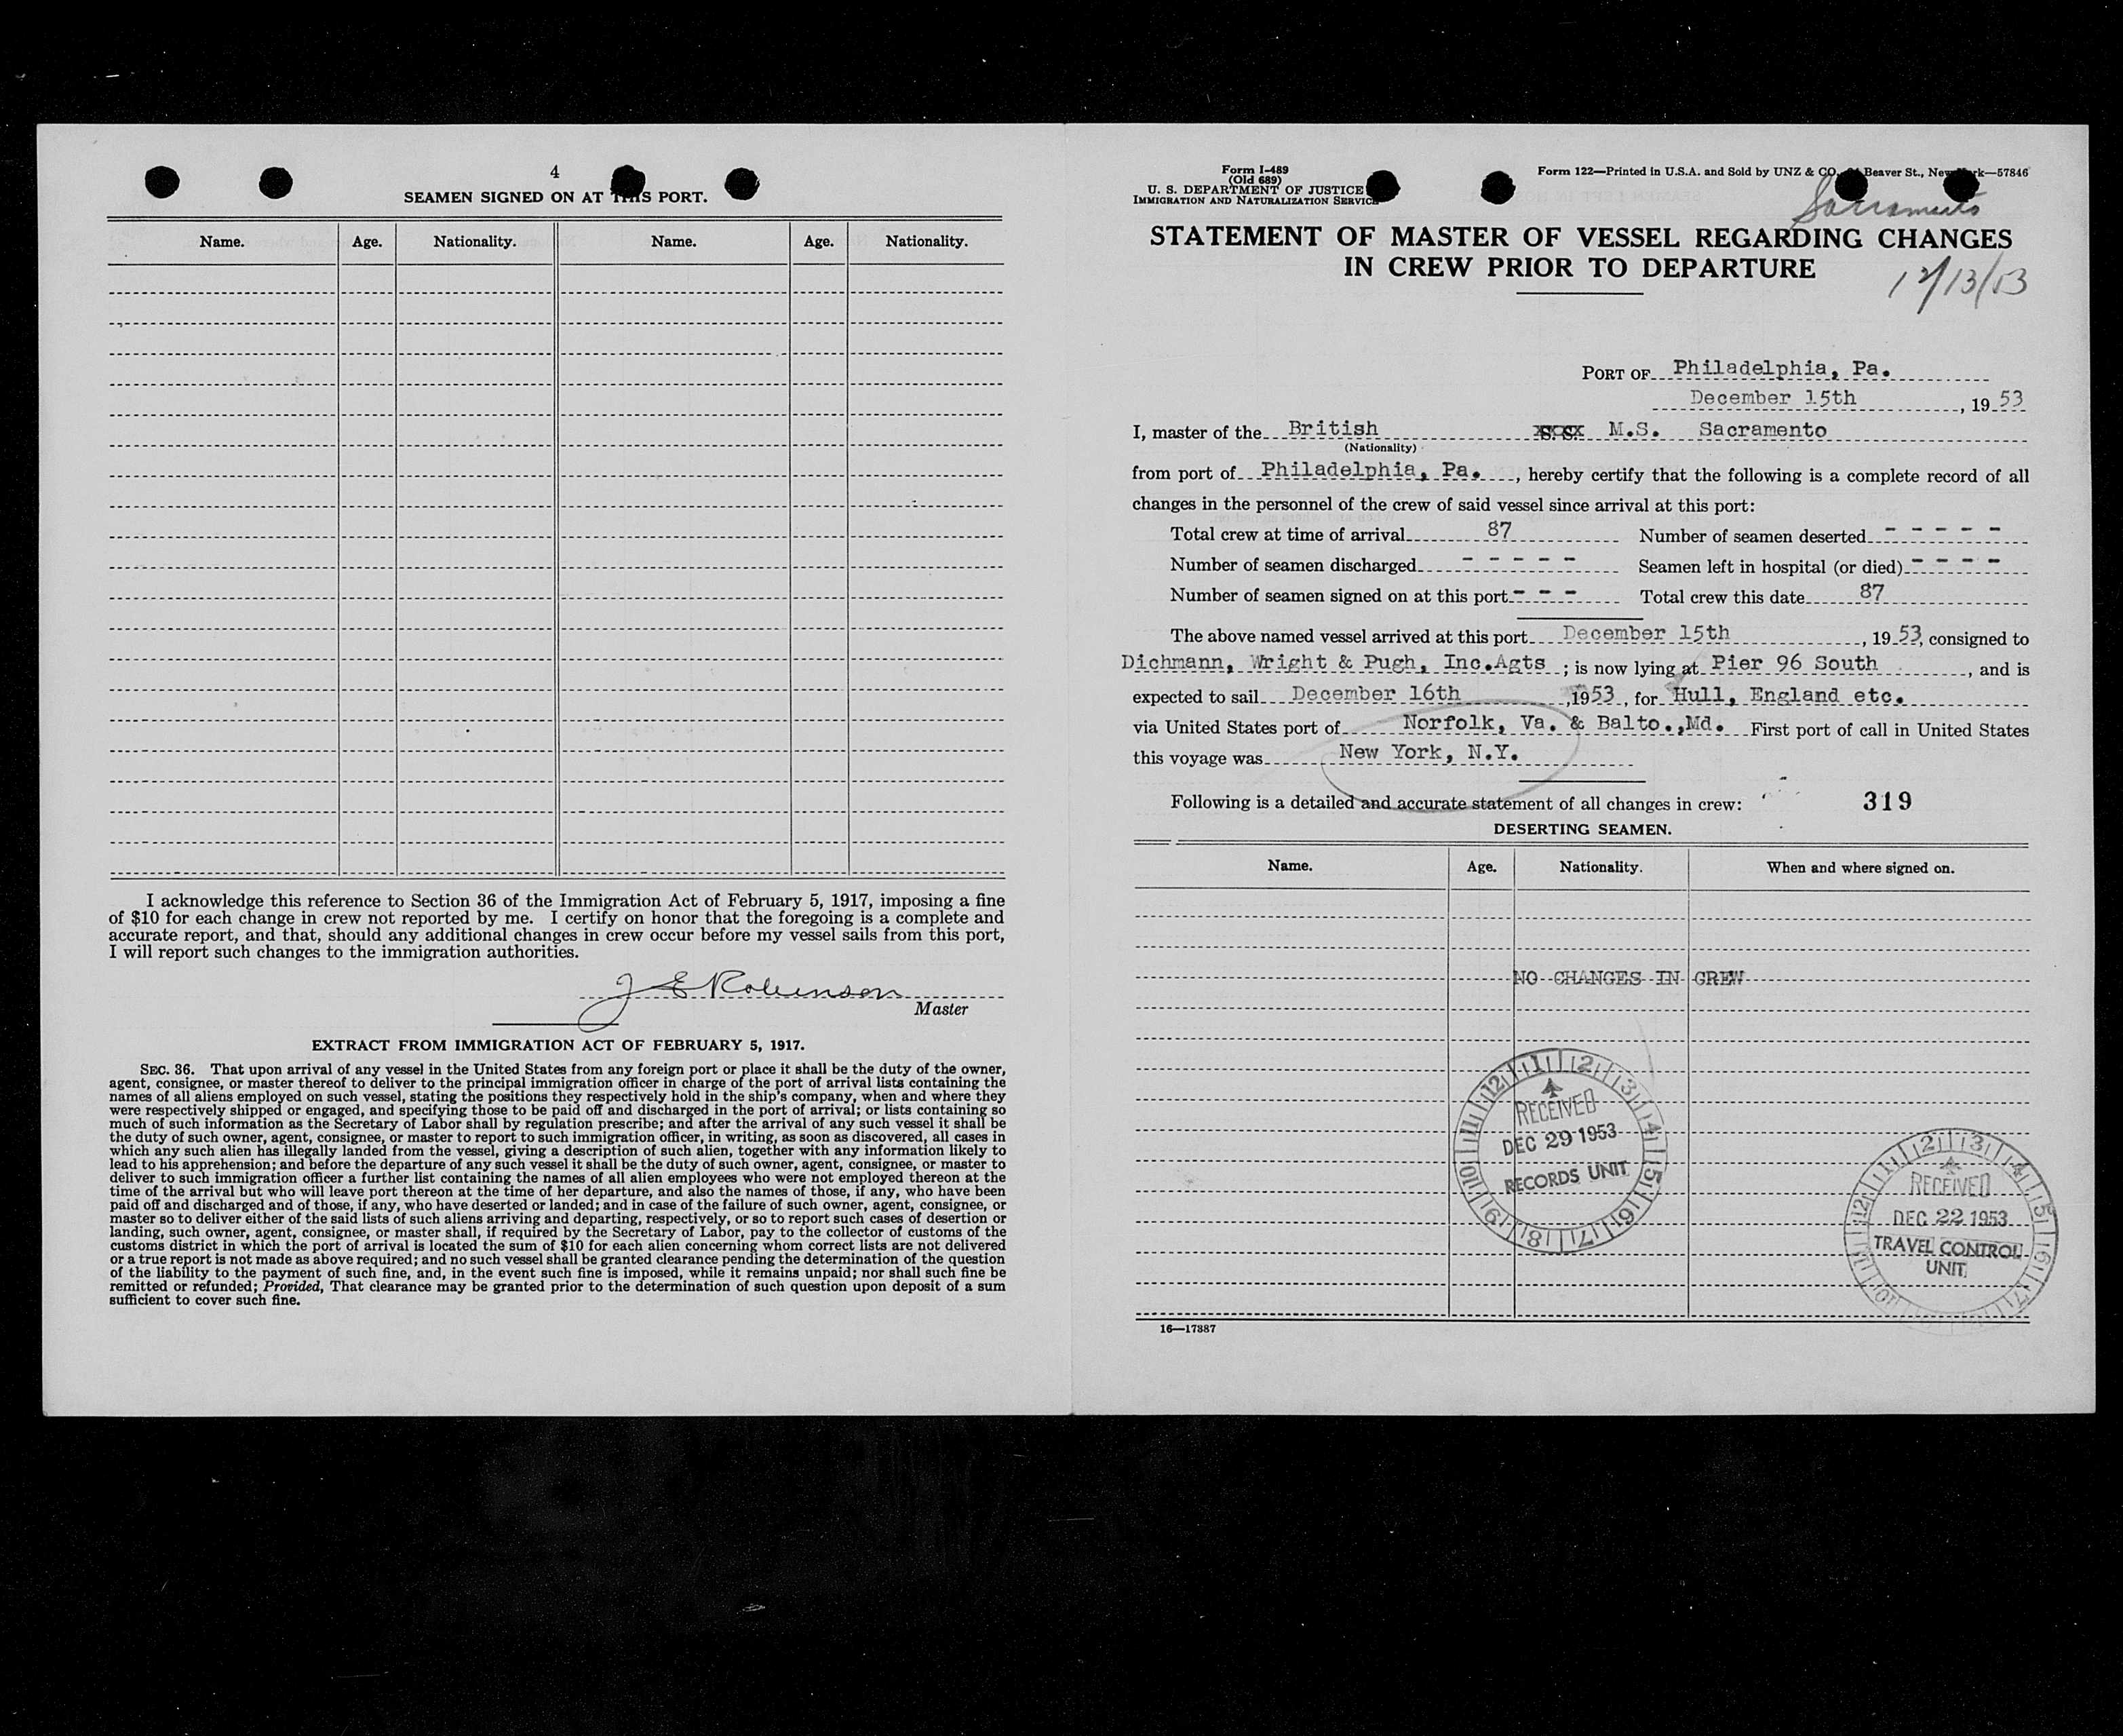 4
SEAMEN SIGNED ON AT THIS PORT.
Name. Age. Nationality. Name. Age. Nationality.
I acknowledge this reference to Section 36 of the Immigration Act of February 5, 1917, imposing a fine
of $10 for each change in crew not reported by me. I certify on honor that the foregoing is a complete and
accurate report, and that, should any additional changes in crew occur before my vessel sails from this port,
I will report such changes to the immigration authorities.
J E Robinson
Master
EXTRACT FROM IMMIGRATION ACT OF FEBRUARY 5, 1917.
SEC. 36. That upon arrival of any vessel in the United States from any foreign port or place it shall be the duty of the owner,
agent, consignee, or master thereof to deliver to the principal immigration officer in charge of the port of arrival lists containing the
names of all aliens employed on such vessel, stating the positions they respectively hold in the ship's company, when and where they
were respectively shipped or engaged, and specifying those to be paid off and discharged in the port of arrival; or lists containing so
much of such information as the Secretary of Labor shall by regulation prescribe; and after the arrival of any such vessel it shall be
the duty of such owner, agent, consignee, or master to report to such immigration officer, in writing, as soon as discovered, all cases in
which any such alien has illegally landed from the vessel, giving a description of such alien, together with any information likely to
lead to his apprehension; and before the departure of any such vessel it shall be the duty of such owner, agent, consignee, or master to
deliver to such immigration officer a further list containing the names of all alien employees who were not employed thereon at the
time of the arrival but who will leave port thereon at the time of her departure, and also the names of those, if any, who have been
paid off and discharged and of those, if any, who have deserted or landed; and in case of the failure of such owner, agent, consignee, or
master so to deliver either of the said lists of such aliens arriving and departing, respectively, or so to report such cases of desertion or
landing, such owner, agent, consignee, or master shall, if required by the Secretary of Labor, pay to the collector of customs of the
customs district in which the port of arrival is located the sum of $10 for each alien concerning whom correct lists are not delivered
or a true report is not made as above required; and no such vessel shall be granted clearance pending the determination of the question
of the liability to the payment of such fine, and, in the event such fine is imposed, while it remains unpaid; nor shall such fine be
remitted or refunded; Provided, That clearance may be granted prior to the determination of such question upon deposit of a sum
sufficient to cover such fine.
Form I-489
(Old 689)
U. S. DEPARTMENT OF JUSTICE
IMMIGRATION AND NATURALIZATION SERVICE
Form 122—Printed in U.S.A. and Sold by UNZ & CO. Beaver St., New York—57846
Sacramento
STATEMENT OF MASTER OF VESSEL REGARDING CHANGES
IN CREW PRIOR TO DEPARTURE
12/13/53
PORT OF Philadelphia, Pa.
December 15th, 19 53
I, master of the British M.S. Sacramento
(Nationality)
from port of Philadelphia, Pa., hereby certify that the following is a complete record of all
changes in the personnel of the crew of said vessel since arrival at this port:
Total crew at time of arrival 87 Number of seamen deserted - - - - -
Number of seamen discharged - - - - - Seamen left in hospital (or died) - - - -
Number of seamen signed on at this port - - - Total crew this date 87
The above named vessel arrived at this port December 15th, 19 53, consigned to
Dichmann, Wright & Pugh, Inc.Agts; is now lying at Pier 96 South, and is
expected to sail December 16th, 1953, for Hull, England etc.
via United States port of Norfolk, Va. & Balto.,Md. First port of call in United States
this voyage was New York, N.Y.
Following is a detailed and accurate statement of all changes in crew: 319
DESERTING SEAMEN.
Name. Age. Nationality. When and where signed on.
NO CHANGES IN CREW
12 1 2 3 4 5 6 7 8 9 10 11
RECEIVED
DEC 29 1953
RECORDS UNIT
12 1 2 3 4 5 6 7 10 11
RECEIVED
DEC 22 1953
TRAVEL CONTROL
UNIT
16—17387